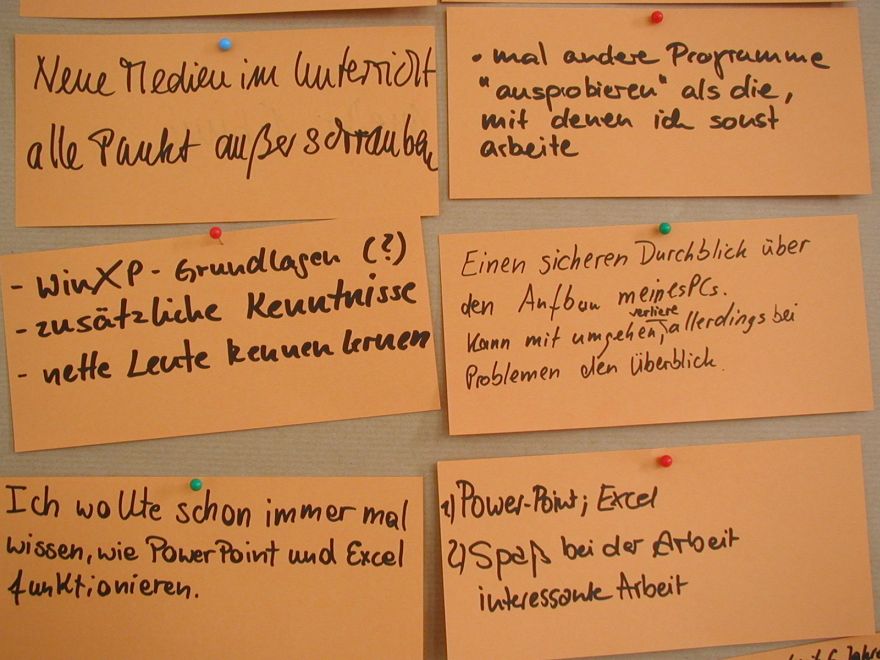 Neue Medien im Unterricht
alle Paukt außer schrauben
• mal andere Programme
"ausprobieren" als die,
mit denen ich sonst
arbeite
- WinXP - Grundlagen (?)
- zusätzliche Kenntnisse
- nette Leute kennen lernen
Einen sicheren Durchblick über
den Aufbau meines PCs.
Kann mit umgehen, verliere allerdings bei
Problemen den Überblick.
Ich wollte schon immer mal
wissen, wie PowerPoint und Excel
funktionieren.
1) Power-Point; Excel
2) Spaß bei der Arbeit
interessante Arbeit